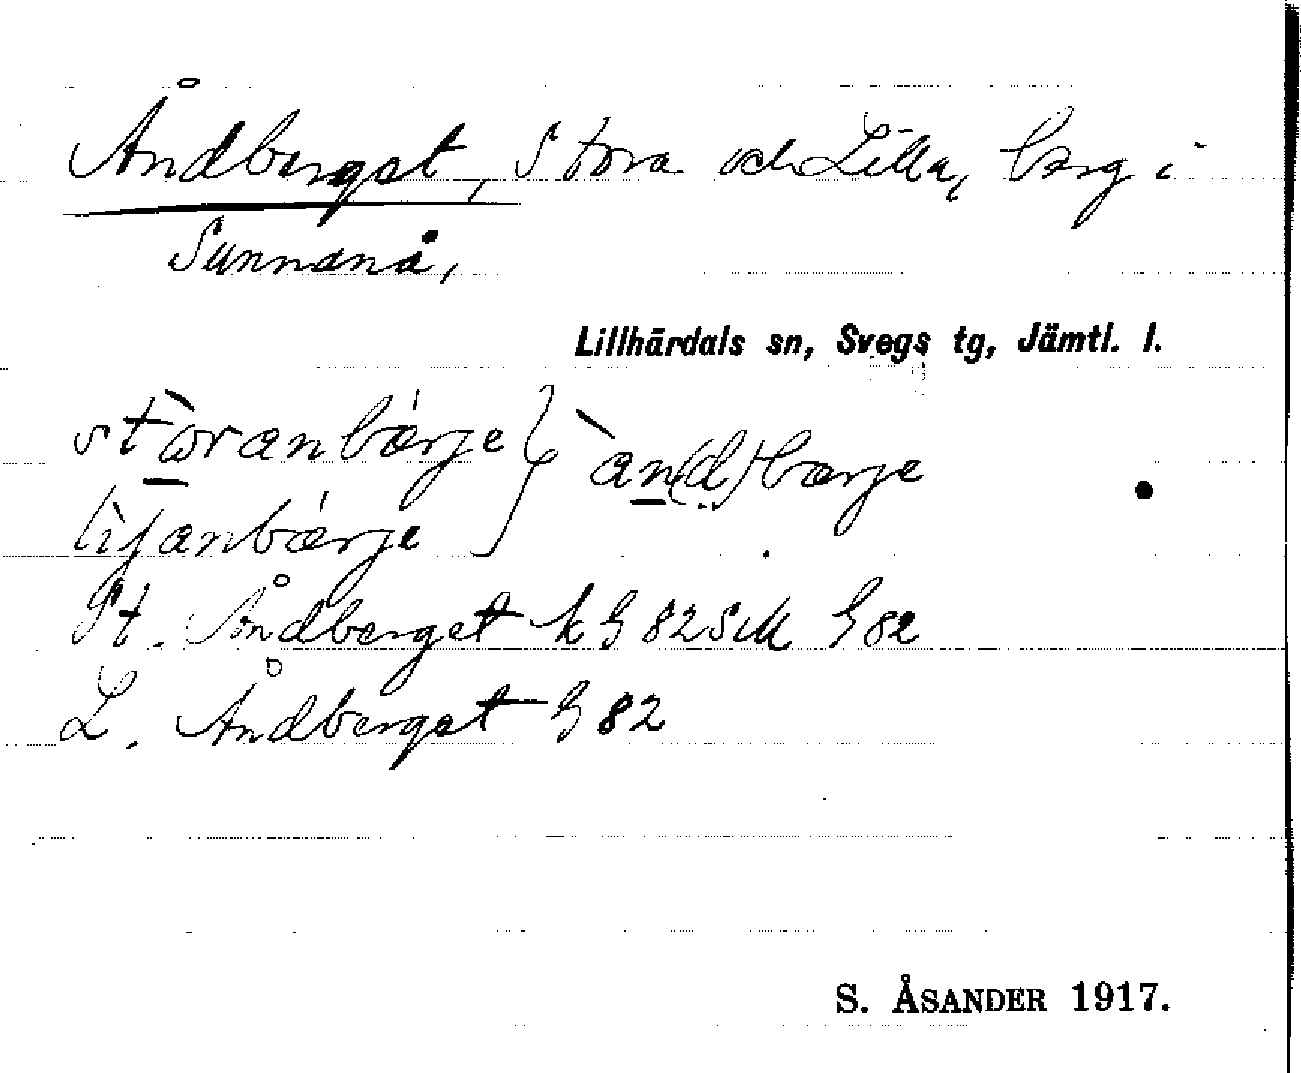 Åndberget, Stora och Lilla, berg i
Sunnanå,
Lillhärdals sn, Svegs tg, Jämtl. l.
stòranbærje } àn(d)bærje
lìɟanbærje
St. Åndberget k G 82 SiM G 82
L. Åndberget G 82
S. ÅSANDER 1917.